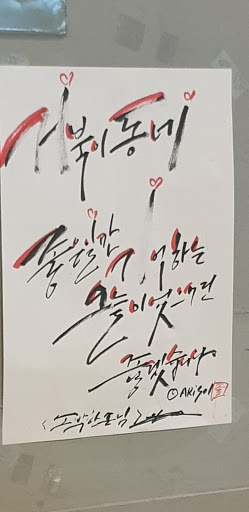 서북이동네
좋은일만
기억하는
오늘이었으면
좋겠습니다
©AKisol
<소박한돈님>